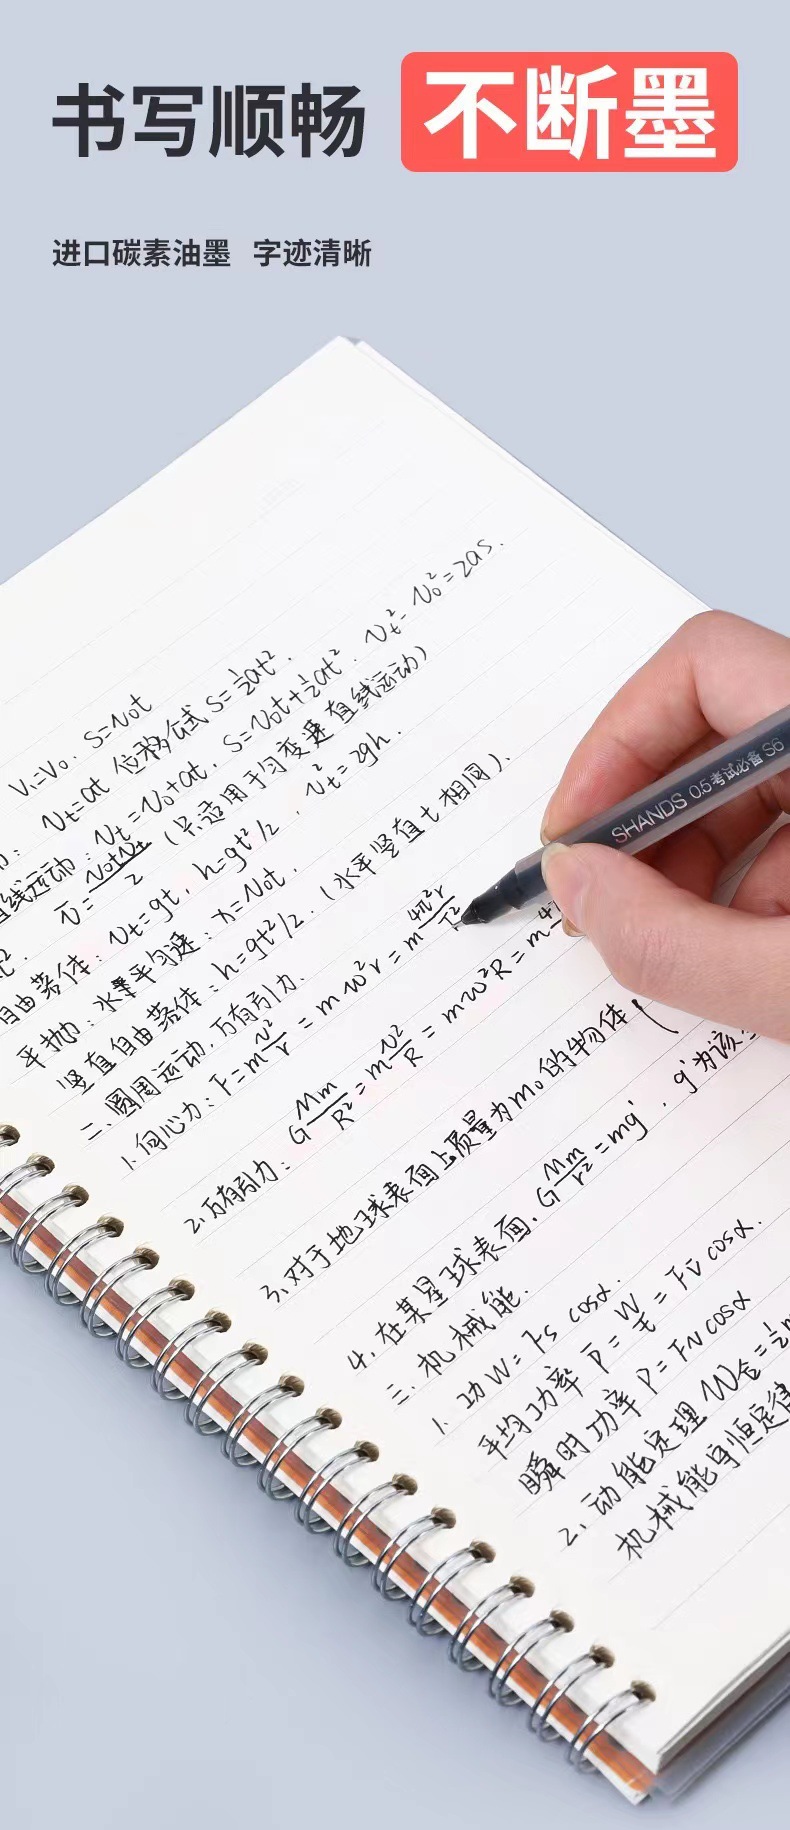 书写顺畅 不断墨
进口碳素油墨 字迹清晰
V₁=V₀. S=V₀t
Vt=at 位移公式 S=½at².
直线运动: Vt=V₀+at, S=V₀t+½at². Vt²-V₀²=2as.
v̄=(V₀+Vt)/2 (只适用于匀变速直线运动)
自由落体: Vt=gt, h=gt²/2, Vt²=2gh.
平抛: 水平匀速: x=V₀t.
竖直自由落体: h=gt²/2. (水平竖直t相同).
二、圆周运动.万有引力.
1.向心力: F=mv²/r=mw²r=m4π²r/T²
2.万有引力: GMm/R²=mv²/R=mw²R=m4
3.对于地球表面上质量为m₀的物体(
4.在某星球表面. GMm/r²=mg'. g'为该
三、机械能.
1.功W=Fs cosα.
平均功率 P̄=W/t=Fv̄cosα.
瞬时功率 P=FVcosα
2.动能定理 W合=½m
机械能守恒定律
SHANDS 0.5 考试必备 S6